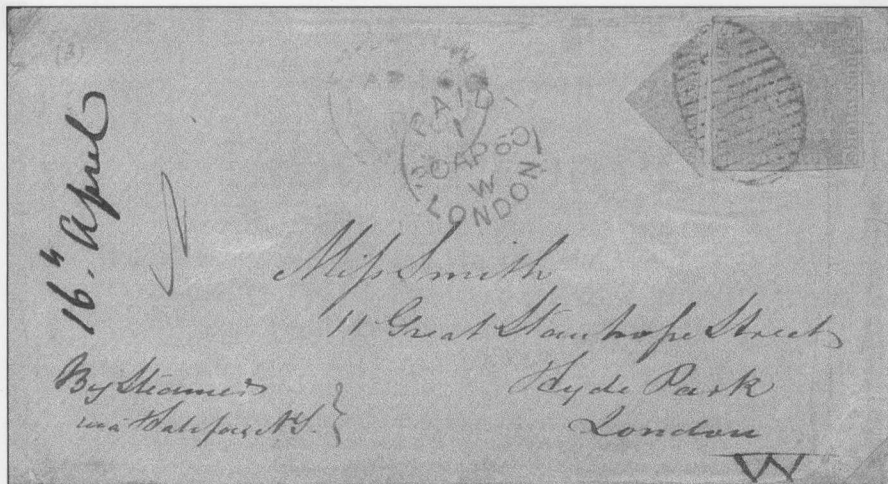 (3)
16.th April
PAID
1
20 AP 60
W
LONDON
Miss Smith
11 Great Stanhope Street
Hyde Park
London
W
By Steamer
via Halifax N.S.